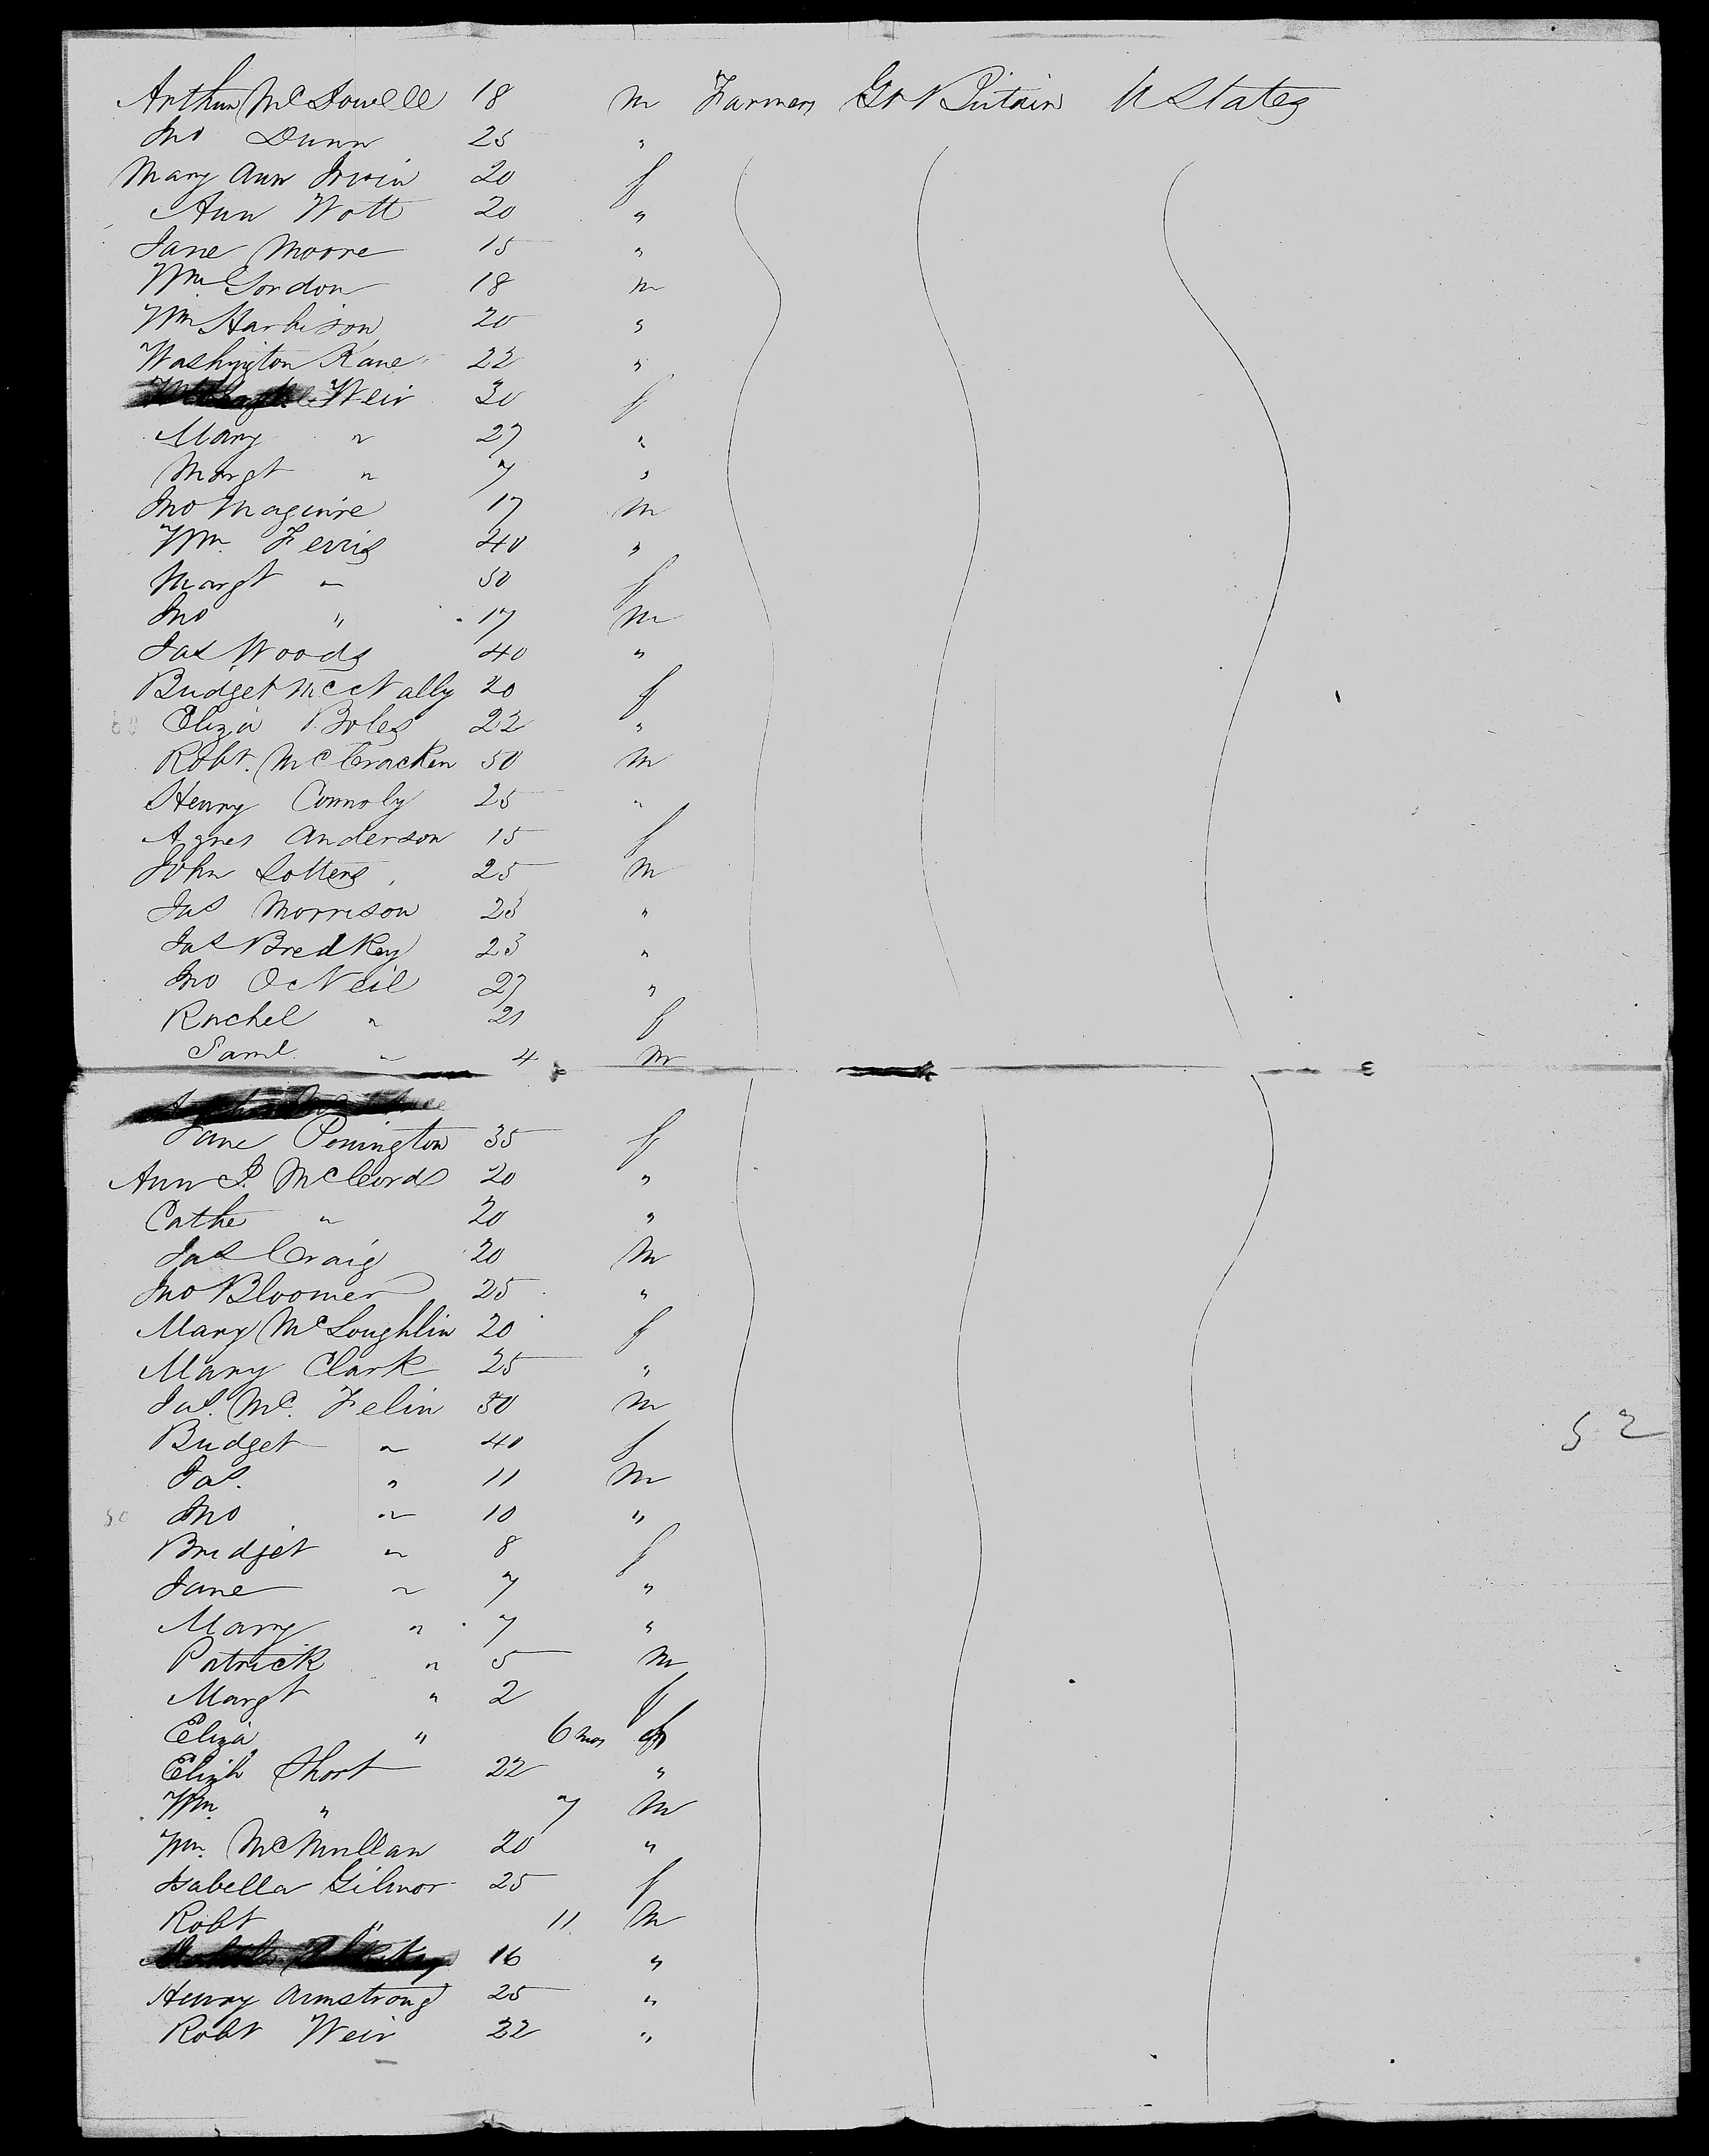 Arthur McDowell 18 m Farmers Gt Britain U States
Jno Dunn 25 "
Mary Ann Irvin 20 f
Ann Watt 20 "
Jane Moore 15 "
Wm Gordon 18 m
Wm Harbison 20 "
Washington Kane 22 "
Weir 30 f
Mary " 27 "
Margt " 7 "
Jno Maguire 17 m
Wm. Ferris 40 "
Margt " 50 f
Jno " 17 m
Jas Woods 40 "
Bridget McNally 20 f
60 Eliza Boles 22 "
Robt. McCracken 50 m
Henry Connoly 25 "
Agnes Anderson 15 f
John Lotters 25 m
Jas Morrison 23 "
Jas Bredkey 23 "
Jno O'Neil 27 "
Rachel " 21 f
Saml. " 4 m
Jane Penington 35 f
Ann J. McCord 20 "
Cathe " 20 "
Jas Craig 20 m
Jno Bloomer 25 "
Mary McLoughlin 20 f
Mary Clark 25 "
Jas. Mc. Felin 50 m
Bridget " 40 f
52
Jas. " 11 m
50 Jno " 10 "
Bridget " 8 f
Jane " 7 "
Mary " 7 "
Patrick " 5 m
Margt " 2 f
Eliza " 6 mos f
Elizh Short 22 "
Wm. " 7 m
Wm. McMullan 20 "
Isabella Gilmor 25 f
Robt " 11 m
16 "
Henry Armstrong 25 "
Robt Weir 22 "